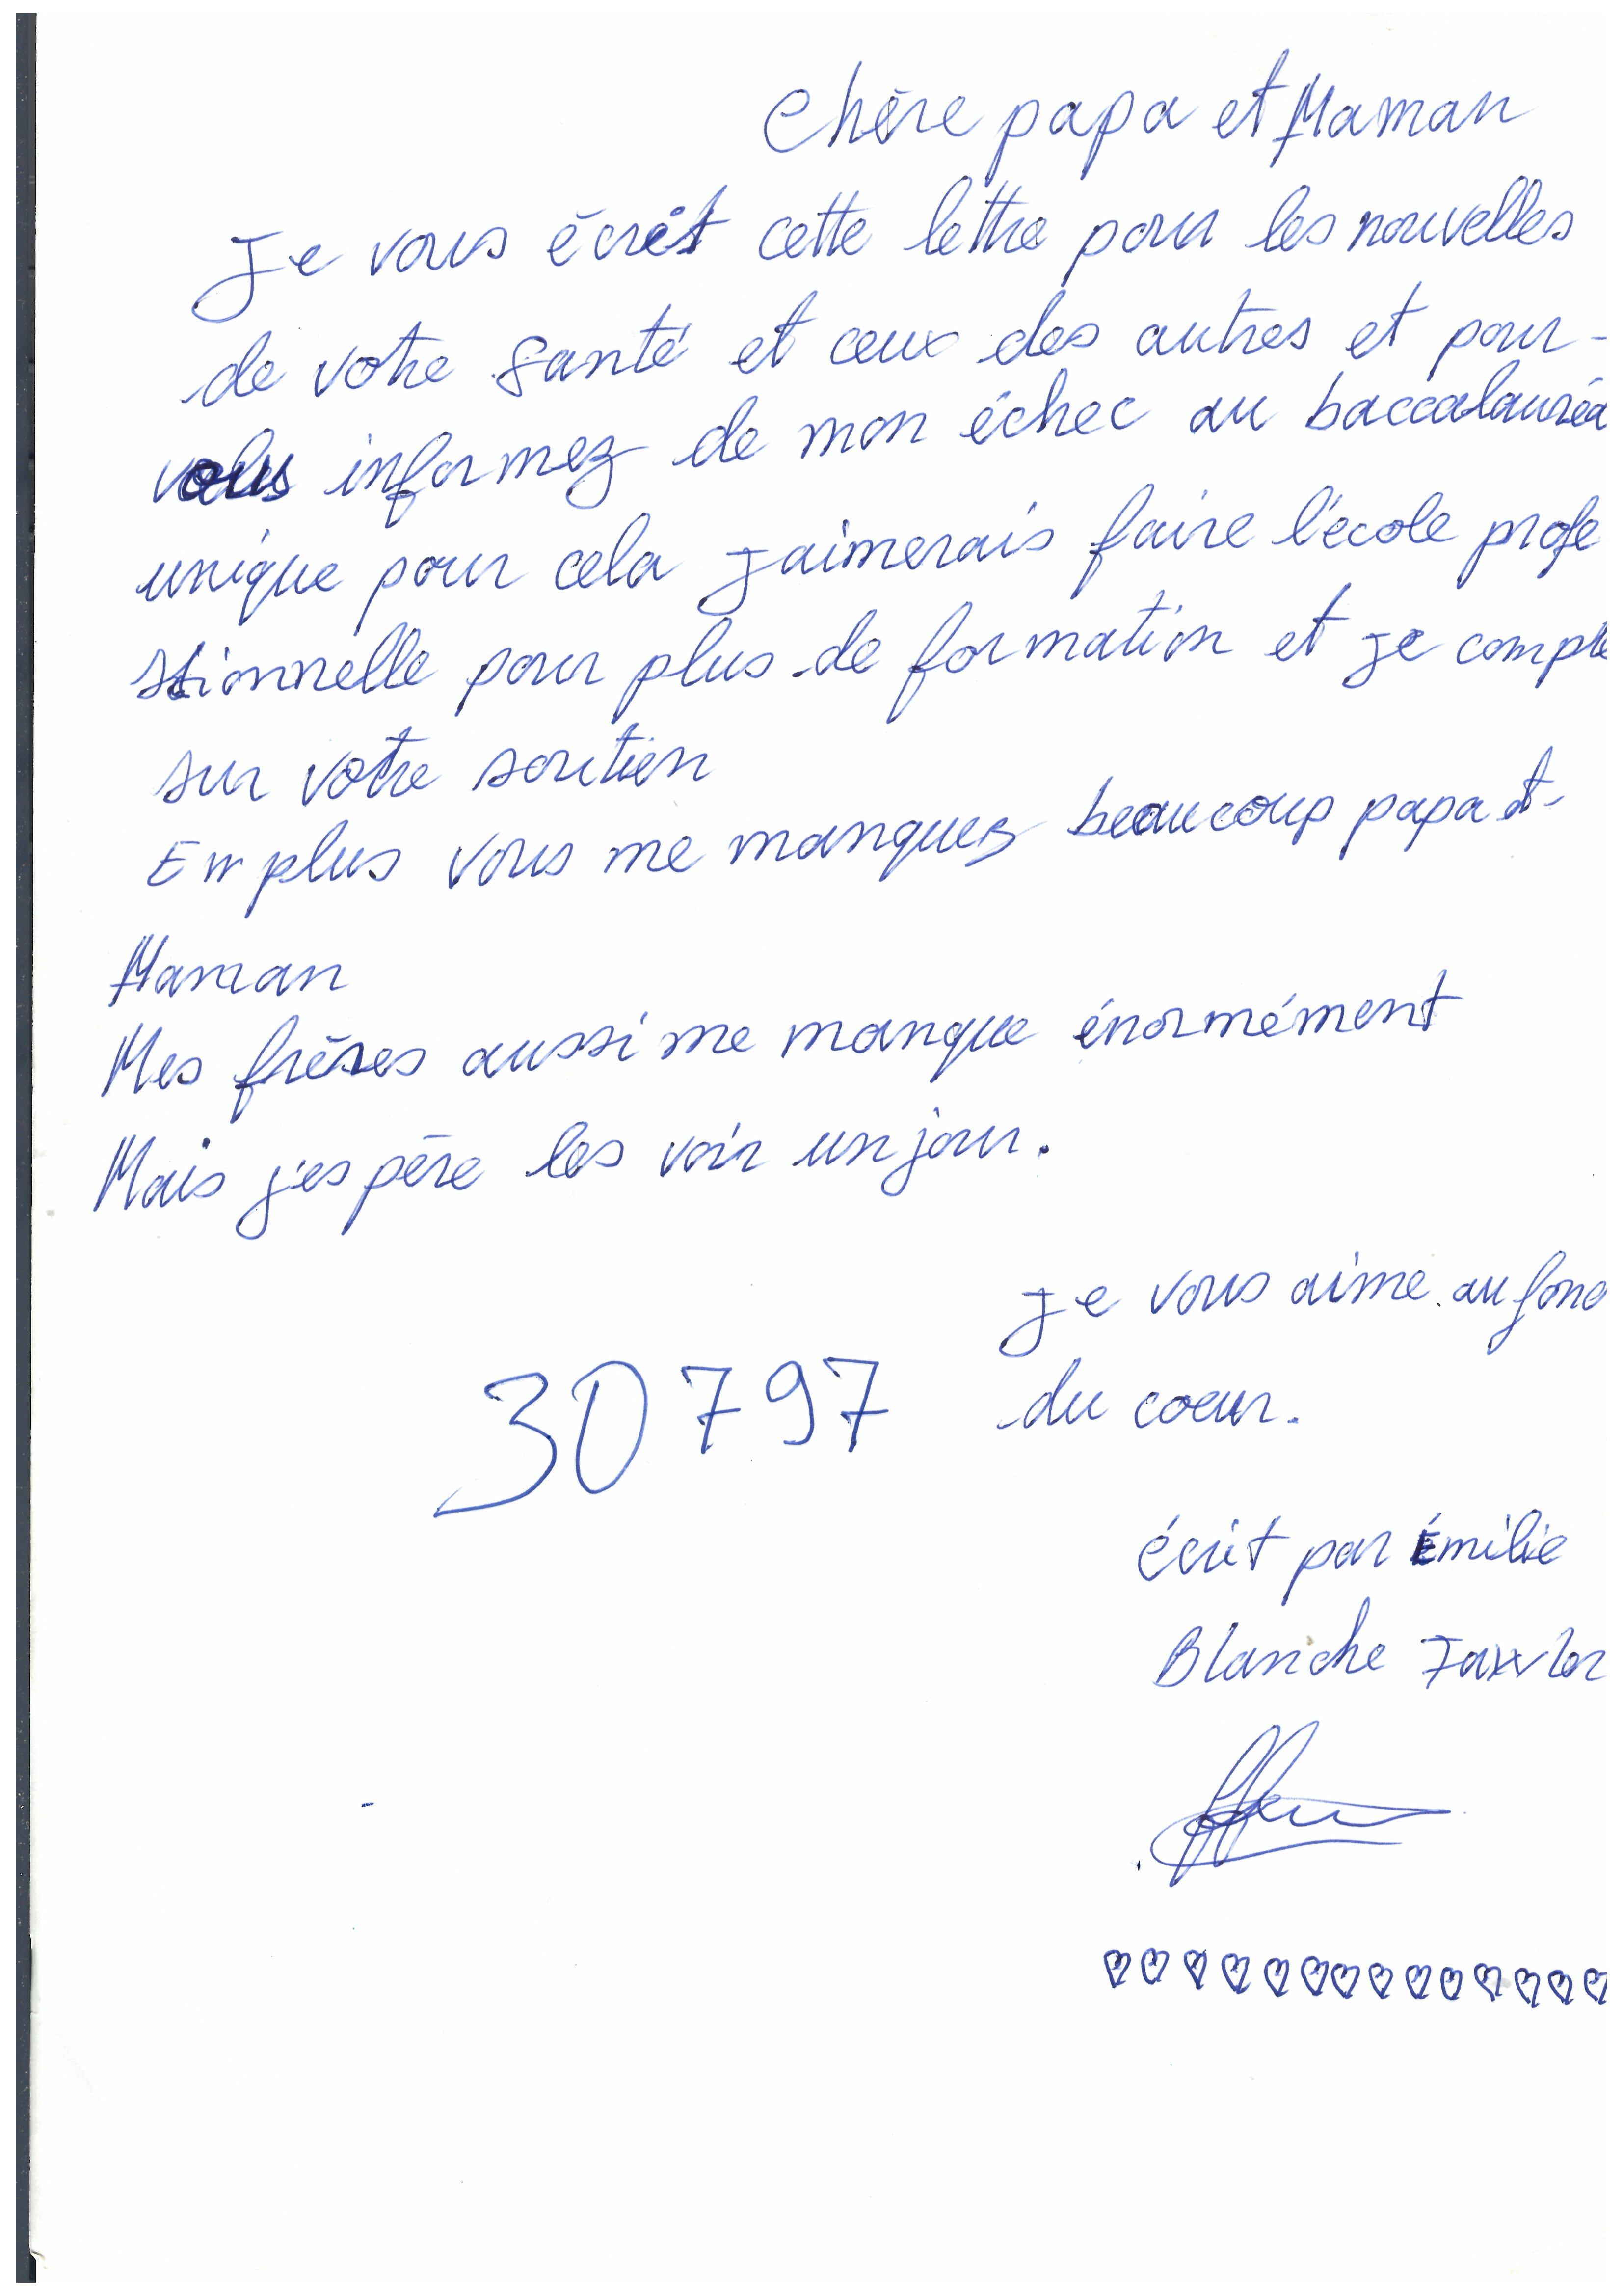 Chère papa et Maman
Je vous écrit cette lettre pour les nouvelles
de votre santé et ceux des autres et pour
vous informez de mon échec au baccalauréa
unique pour cela j'aimerais faire l'école profe
ssionnelle pour plus de formation et je compte
sur votre soutien
En plus vous me manquez beaucoup papa et
Maman
Mes frères aussi me manque énormément
Mais j'espère les voir un jour.
Je vous aime au fond
du coeur.
30797
écrit par Émilie
Blanche